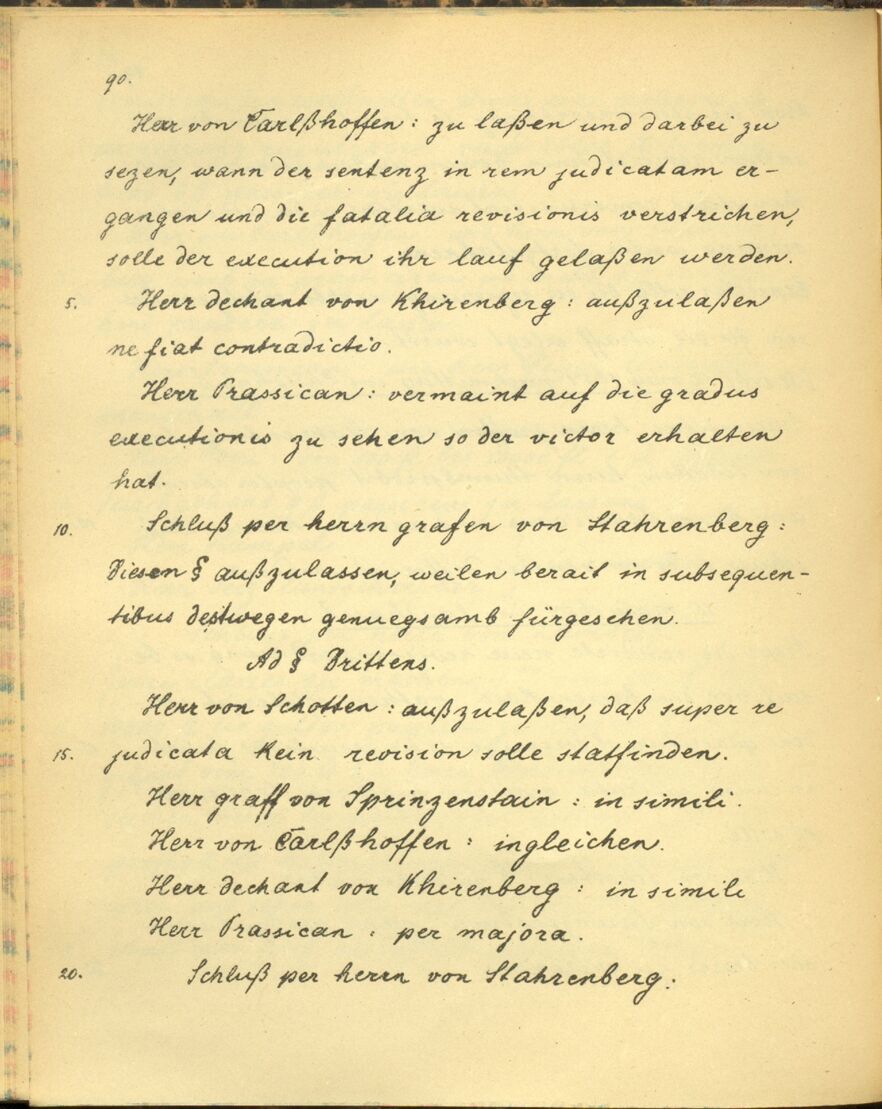 90.
Herr von Carlßhoffen: zu laßen und darbei zu
sezen, wann der sentenz in rem judicatam er-
gangen und die fatalia revisionis verstrichen,
solle der execution ihr lauf gelaßen werden.
5. Herr dechant von Khirenberg: außzulaßen
ne fiat contradictio.
Herr Prassican: vermaint auf die gradus
executionis zu sehen so der victor erhalten
hat.
10. Schluß per herrn grafen von Stahrenberg:
Diesen § außzulassen, weilen berait in subsequen-
tibus destwegen genuegsamb fürgesehen.
Ad § Drittens.
Herr von Schotten: außzulaßen, daß super re
15. judicata kein revision solle statfinden.
Herr graff von Sprinzenstain: in simili.
Herr von Carlßhoffen: ingleichen.
Herr dechant von Khirenberg: in simili
Herr Prassican: per majora.
20. Schluß per herrn von Stahrenberg: